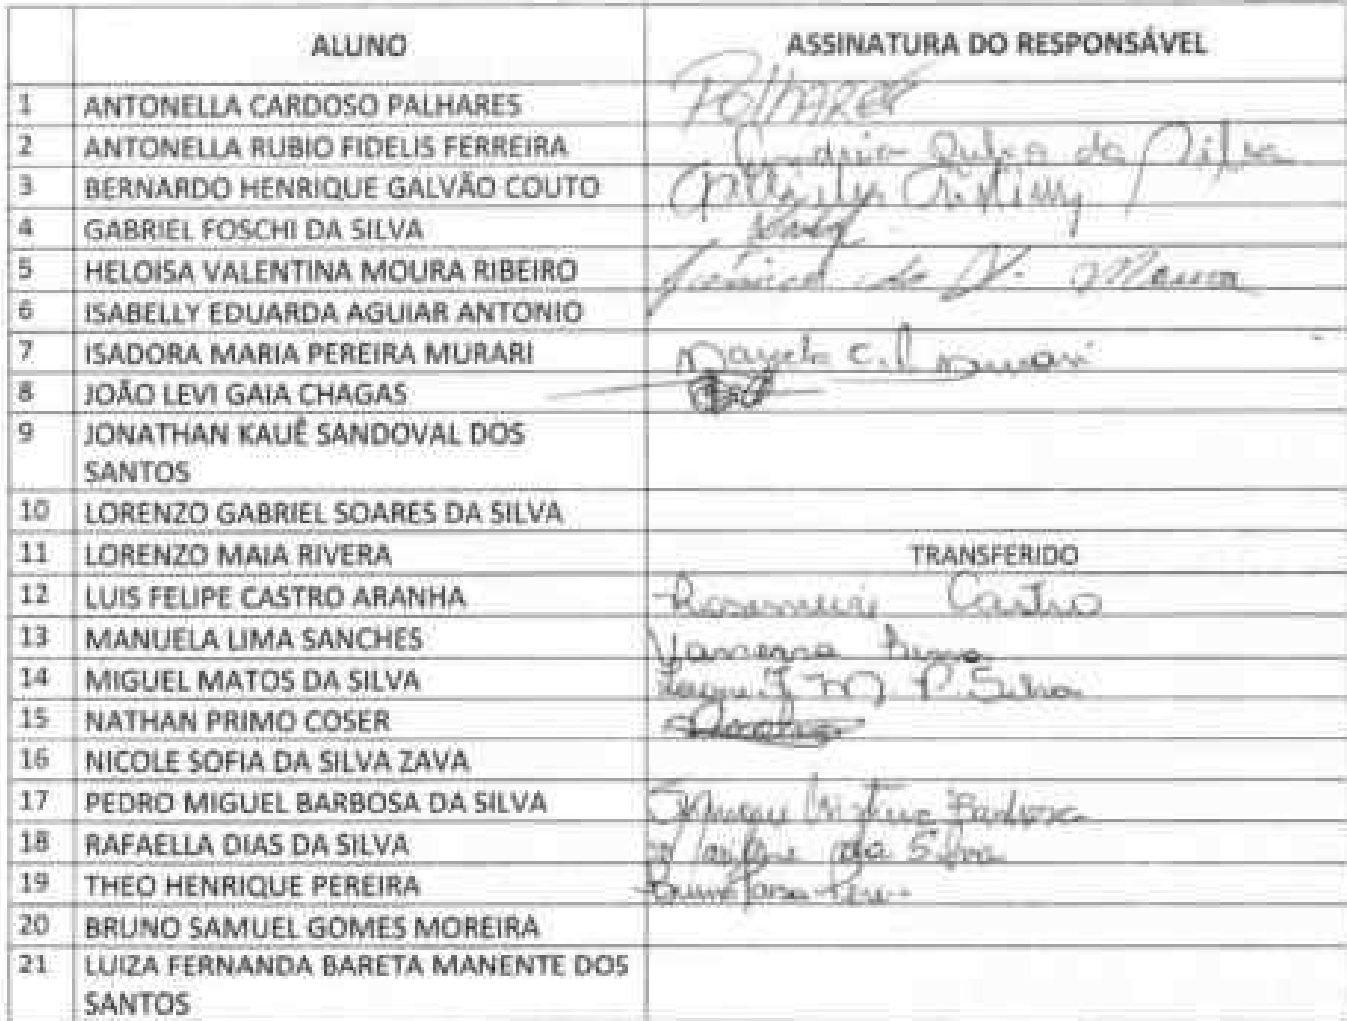 ALUNO ASSINATURA DO RESPONSÁVEL
1 ANTONELLA CARDOSO PALHARES Palhares
2 ANTONELLA RUBIO FIDELIS FERREIRA da Silva
3 BERNARDO HENRIQUE GALVÃO COUTO
4 GABRIEL FOSCHI DA SILVA
5 HELOISA VALENTINA MOURA RIBEIRO Moura
6 ISABELLY EDUARDA AGUIAR ANTONIO
7 ISADORA MARIA PEREIRA MURARI Murari
8 JOÃO LEVI GAIA CHAGAS
9 JONATHAN KAUÊ SANDOVAL DOS
SANTOS
10 LORENZO GABRIEL SOARES DA SILVA
11 LORENZO MAIA RIVERA TRANSFERIDO
12 LUIS FELIPE CASTRO ARANHA Rosemeire Castro
13 MANUELA LIMA SANCHES Vanessa Lima
14 MIGUEL MATOS DA SILVA M. P. Silva
15 NATHAN PRIMO COSER
16 NICOLE SOFIA DA SILVA ZAVA
17 PEDRO MIGUEL BARBOSA DA SILVA Barbosa
18 RAFAELLA DIAS DA SILVA da Silva
19 THEO HENRIQUE PEREIRA
20 BRUNO SAMUEL GOMES MOREIRA
21 LUIZA FERNANDA BARETA MANENTE DOS
SANTOS